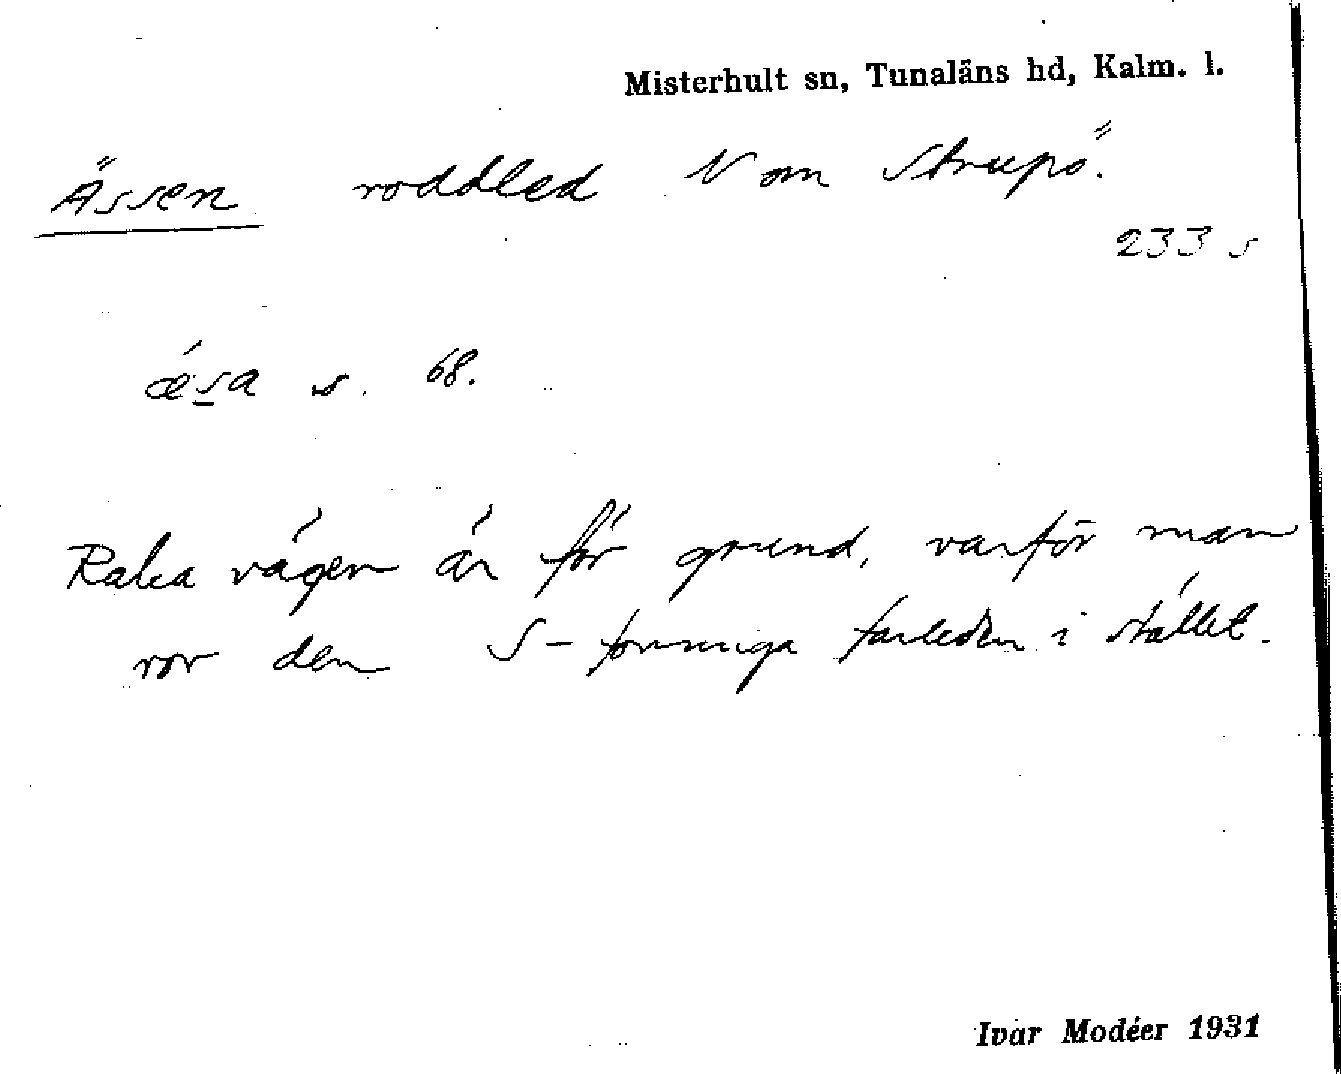 Misterhult sn, Tunaläns hd, Kalm. l.
Ässen roddled N om Strupö.
233 s
ǽsa s. 68.
Raka vägen är för grund, varför man
ror den S-formiga farleden i stället.
Ivar Modéer 1931